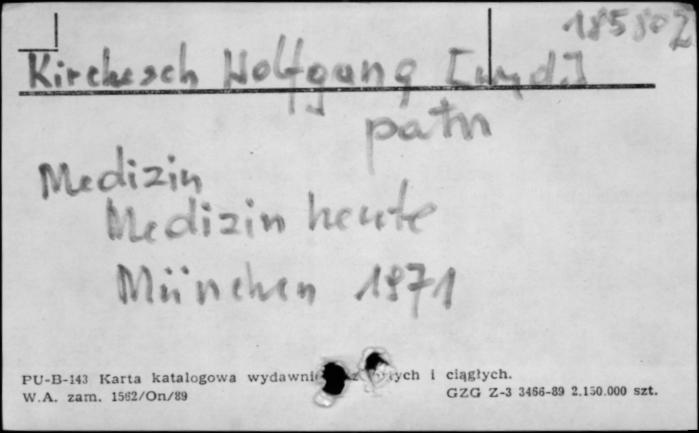 185802
Kirchesch Wolfgang [wyd.]
patrz
Medizin
Medizin heute
München 1971
PU-B-143 Karta katalogowa i ciągłych.
W.A. zam. 1562/On/89 GZG Z-3 3466-89 2.150.000 szt.